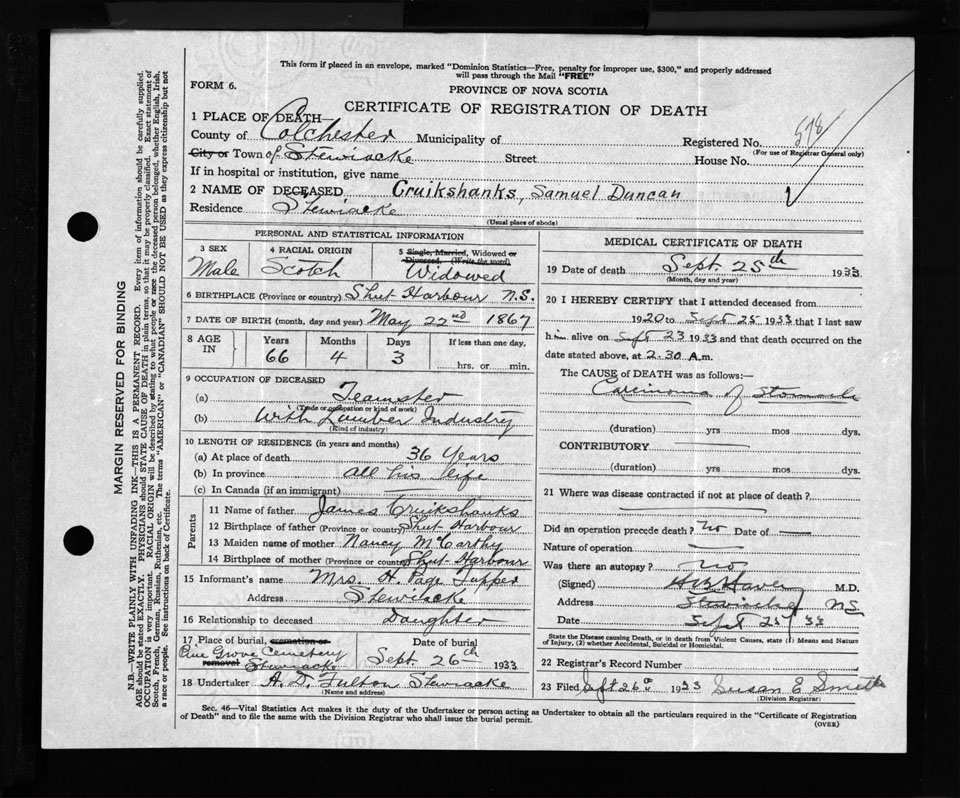 This form if placed in an envelope, marked "Dominion Statistics—Free, penalty for improper use, $300," and properly addressed
will pass through the Mail "FREE"
FORM 6.
PROVINCE OF NOVA SCOTIA
CERTIFICATE OF REGISTRATION OF DEATH
1 PLACE OF DEATH
County of Colchester Municipality of Registered No. 578
(For use of Registrar General only)
City or Town of Stewiacke Street House No.
If in hospital or institution, give name
2 NAME OF DECEASED Cruikshanks, Samuel Duncan
Residence Stewiacke
(Usual place of abode)
PERSONAL AND STATISTICAL INFORMATION
3 SEX Male
4 RACIAL ORIGIN Scotch
5 Single, Married, Widowed or
Divorced. (Write the word)
Widowed
6 BIRTHPLACE (Province or country) Shut Harbour N.S.
7 DATE OF BIRTH (month, day and year) May 22nd 1867
8 AGE IN Years Months Days If less than one day,
66 4 3 hrs. or min.
9 OCCUPATION OF DECEASED
(a) Teamster
(Trade or occupation or kind of work)
(b) With Lumber Industry
(Kind of industry)
10 LENGTH OF RESIDENCE (in years and months)
(a) At place of death 36 Years
(b) In province all his life
(c) In Canada (if an immigrant)
Parents
11 Name of father James Cruikshanks
12 Birthplace of father (Province or country) Shut Harbour
13 Maiden name of mother Nancy McCarthy
14 Birthplace of mother (Province or country) Shut Harbour
15 Informant's name Mrs. H. Page Tupper
Address Stewiacke
16 Relationship to deceased Daughter
17 Place of burial, cremation or Date of burial
removal Pine Grove Cemetery
Stewiacke Sept. 26th 1933
18 Undertaker A. D. Fulton Stewiacke
(Name and address)
MEDICAL CERTIFICATE OF DEATH
19 Date of death Sept. 25th 1933
(Month, day and year)
20 I HEREBY CERTIFY that I attended deceased from
1920 to Sept 25 1933 that I last saw
him alive on Sept 23 1933 and that death occurred on the
date stated above, at 2.30 A.m.
The CAUSE of DEATH was as follows:—
Carcinoma of Stomach
(duration) yrs mos dys.
CONTRIBUTORY
(duration) yrs mos dys.
21 Where was disease contracted if not at place of death?
Did an operation precede death? no Date of
Nature of operation
Was there an autopsy? no
(Signed) M.D.
Address Stewiacke N.S.
Date Sept 25/33
State the Disease causing Death, or in death from Violent Causes, state (1) Means and Nature
of Injury, (2) whether Accidental, Suicidal or Homicidal.
22 Registrar's Record Number
23 Filed Sept 26th 1923 Susan E Smith
(Division Registrar)
Sec. 46—Vital Statistics Act makes it the duty of the Undertaker or person acting as Undertaker to obtain all the particulars required in the "Certificate of Registration
of Death" and to file the same with the Division Registrar who shall issue the burial permit.
(OVER)
MARGIN RESERVED FOR BINDING
N.B.—WRITE PLAINLY WITH UNFADING INK—THIS IS A PERMANENT RECORD. Every item of information should be carefully supplied.
AGE should be stated EXACTLY. PHYSICIANS should STATE CAUSE OF DEATH in plain terms, so that it may be properly classified. Exact statement of
OCCUPATION is very important. RACIAL ORIGIN will be described by stating to what people or race the deceased person belonged, whether English, Irish,
Scotch, French, German, Russian, Ruthenian, etc. The terms "AMERICAN" or "CANADIAN" SHOULD NOT BE USED as they express citizenship but not
a race or people. See instructions on back of Certificate.